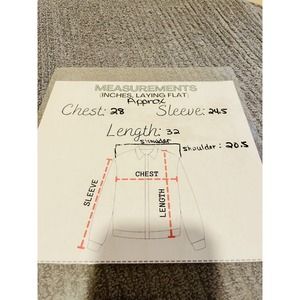 MEASUREMENTS
(INCHES, LAYING FLAT)
Approx
Chest: 28 Sleeve: 24.5
Length: 32
shoulder
shoulder: 20.5
SLEEVE
CHEST
LENGTH